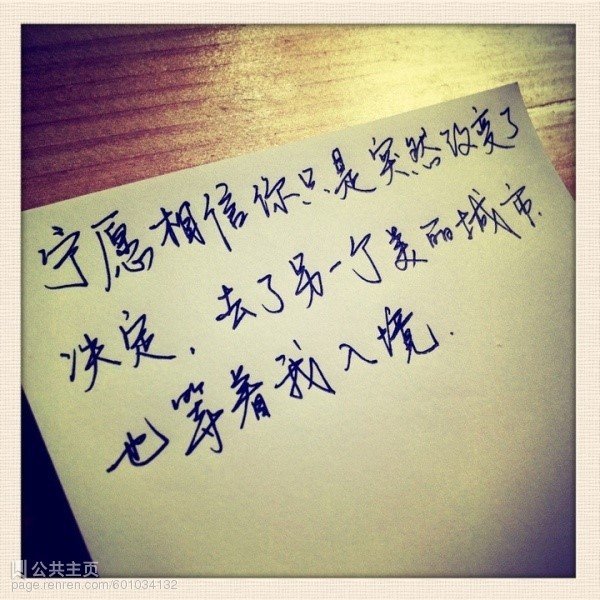 宁愿相信你只是突然改变了
决定，去了另一个美丽城市.
也等着我入境.
公共主页
page.renren.com/601034132